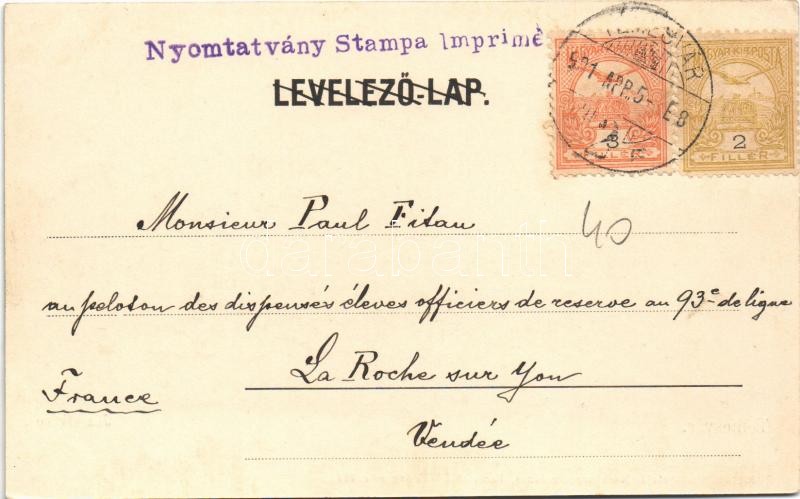 Nyomtatvány Stampa Imprimé
LEVELEZŐ-LAP.
TEMESVÁR
MAGYAR·KIR·POSTA
3
FILLÉR
2
FILLÉR
Monsieur Paul Fitau
40
darabanth
au peloton des dispensés éleves officiers de reserve au 93e de ligne
La Roche sur Yon
France
Vendée